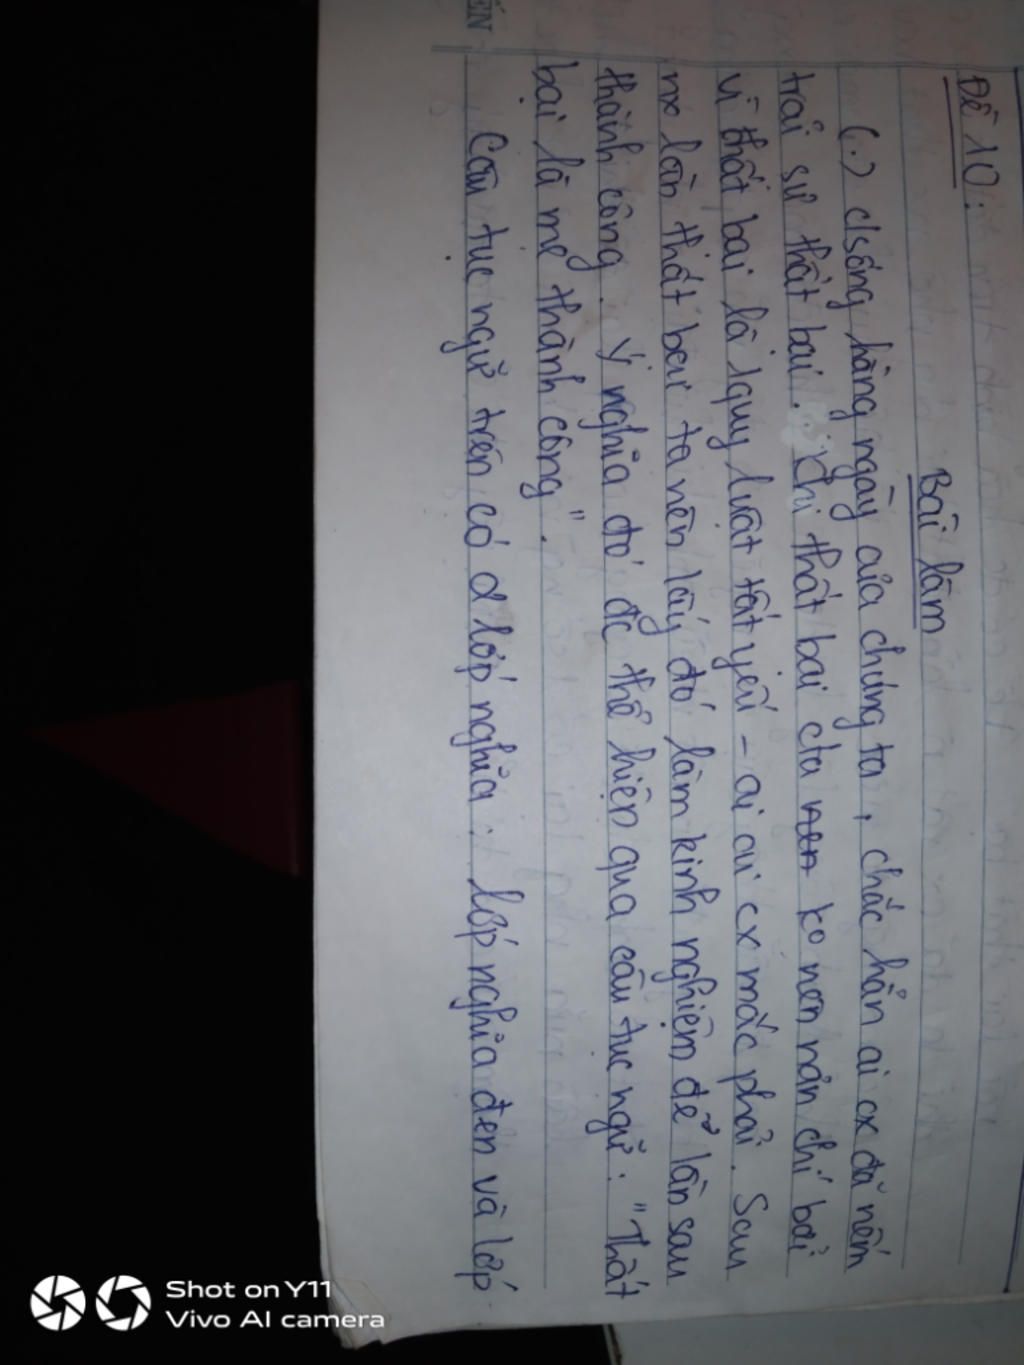 Đề 10:
Bài làm
(.) c/sống hàng ngày của chúng ta, chắc hẳn ai cx đã nếm
trải sự thất bại. Khi thất bại cta nen ko nen nản chí bởi
vì thất bại là 1 quy luật tất yếu - ai cũ cx mắc phải. Sau
nx lần thất bại ta nên lấy đó làm kinh nghiệm để lần sau
thành công. Ý nghĩa đó đc thể hiện qua câu tục ngữ: "Thất
bại là mẹ thành công".
Câu tục ngữ trên có 2 lớp nghĩa: lớp nghĩa đen và lớp
ẾN
Shot on Y11
Vivo AI camera